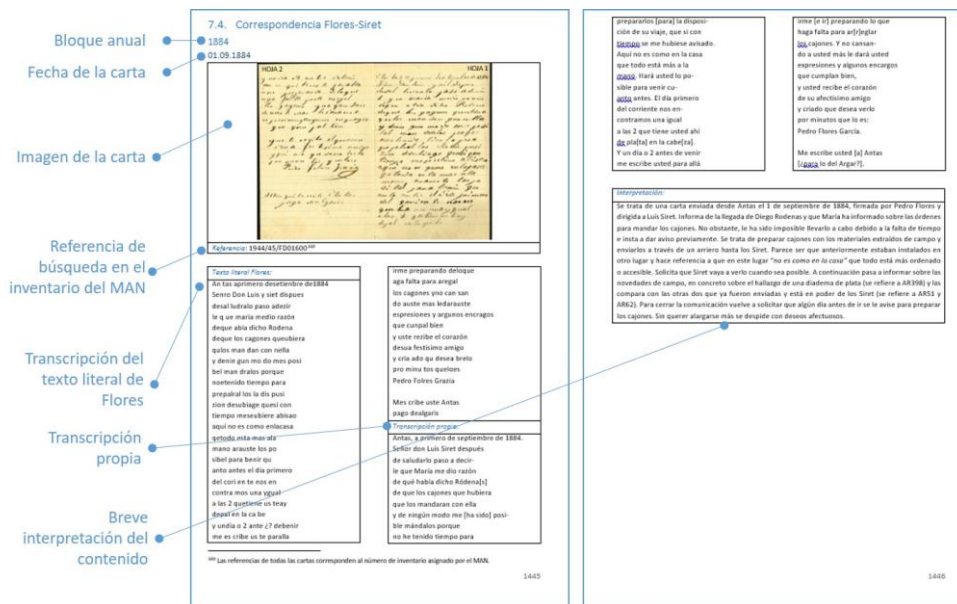 Bloque anual
Fecha de la carta
Imagen de la carta
Referencia de
búsqueda en el
inventario del MAN
Transcripción del
texto literal de
Flores
Transcripción
propia
Breve
interpretación del
contenido
7.4. Correspondencia Flores-Siret
1884
01.09.1884
HOJA 2
HOJA 1
Referencia: 1944/45/FD01600
Texto literal Flores:
An tas aprimero desetienbre de1884
Senro Don Luis y siet dispues
desal ludralo paso adezir
le q ue maria medio razón
deque abia dicho Rodena
deque los cagones queubiera
qulos man dan con nella
y denin gun mo do mes posi
bel man dralos porque
noetenido tiempo para
prepalral los la dis pusi
zion desubiage quesi con
tiempo meseubiere abisao
aqui no es como enlacasa
qetodo esta mas ala
mano arauste los po
sibel para benir qu
anto antes el dia primero
del cori en te nos en
contra mos una ygual
a las 2 quetiene us teay
depal en la ca be
y undia o 2 ante ¿? debenir
me es cribe us te paralla
irme preparando deloque
aga falta para aregal
los cagones yno can san
do auste mas ledarauste
espresiones y argunos encragos
que cunpal bien
y uste rezibe el corazón
desua festisimo amigo
y cria ado qu desea brelo
pro minu tos queloes
Pedro Folres Grazia
Mes cribe uste Antas
pago dealgaris
Transcripción propia:
Antas, a primero de septiembre de 1884.
Señor don Luis Siret después
de saludarlo paso a decir-
le que María me dio razón
de qué había dicho Ródena[s]
de que los cajones que hubiera
que los mandaran con ella
y de ningún modo me [ha sido] posi-
ble mándalos porque
no he tenido tiempo para
Las referencias de todas las cartas corresponden al número de inventario asignado por el MAN.
1445
prepararlos [para] la disposi-
ción de su viaje, que si con
tiempo se me hubiese avisado.
Aquí no es como en la casa
que todo está más a la
mano. Hará usted lo po-
sible para venir cu-
anto antes. El día primero
del corriente nos en-
contramos una igual
a las 2 que tiene usted ahí
de pla[ta] en la cabe[za].
Y un día o 2 antes de venir
me escribe usted para allá
irme [e ir] preparando lo que
haga falta para ar[r]eglar
los cajones. Y no cansan-
do a usted más le dará usted
expresiones y algunos encargos
que cumplan bien,
y usted recibe el corazón
de su afectísimo amigo
y criado que desea verlo
por minutos que lo es:
Pedro Flores García.
Me escribe usted [a] Antas
[¿para lo del Argar?].
Interpretación:
Se trata de una carta enviada desde Antas el 1 de septiembre de 1884, firmada por Pedro Flores y
dirigida a Luis Siret. Informa de la llegada de Diego Rodenas y que María ha informado sobre las órdenes
para mandar los cajones. No obstante, le ha sido imposible llevarlo a cabo debido a la falta de tiempo
e insta a dar aviso previamente. Se trata de preparar cajones con los materiales extraídos de campo y
enviarlos a través de un arriero hasta los Siret. Parece ser que anteriormente estaban instalados en
otro lugar y hace referencia a que en este lugar "no es como en la casa" que todo está más ordenado
o accesible. Solicita que Siret vaya a verlo cuando sea posible. A continuación pasa a informar sobre las
novedades de campo, en concreto sobre el hallazgo de una diadema de plata (se refiere a AR398) y las
compara con las otras dos que ya fueron enviadas y está en poder de los Siret (se refiere a AR51 y
AR62). Para cerrar la comunicación vuelve a solicitar que algún día antes de ir se le avise para preparar
los cajones. Sin querer alargarse más se despide con deseos afectuosos.
1446